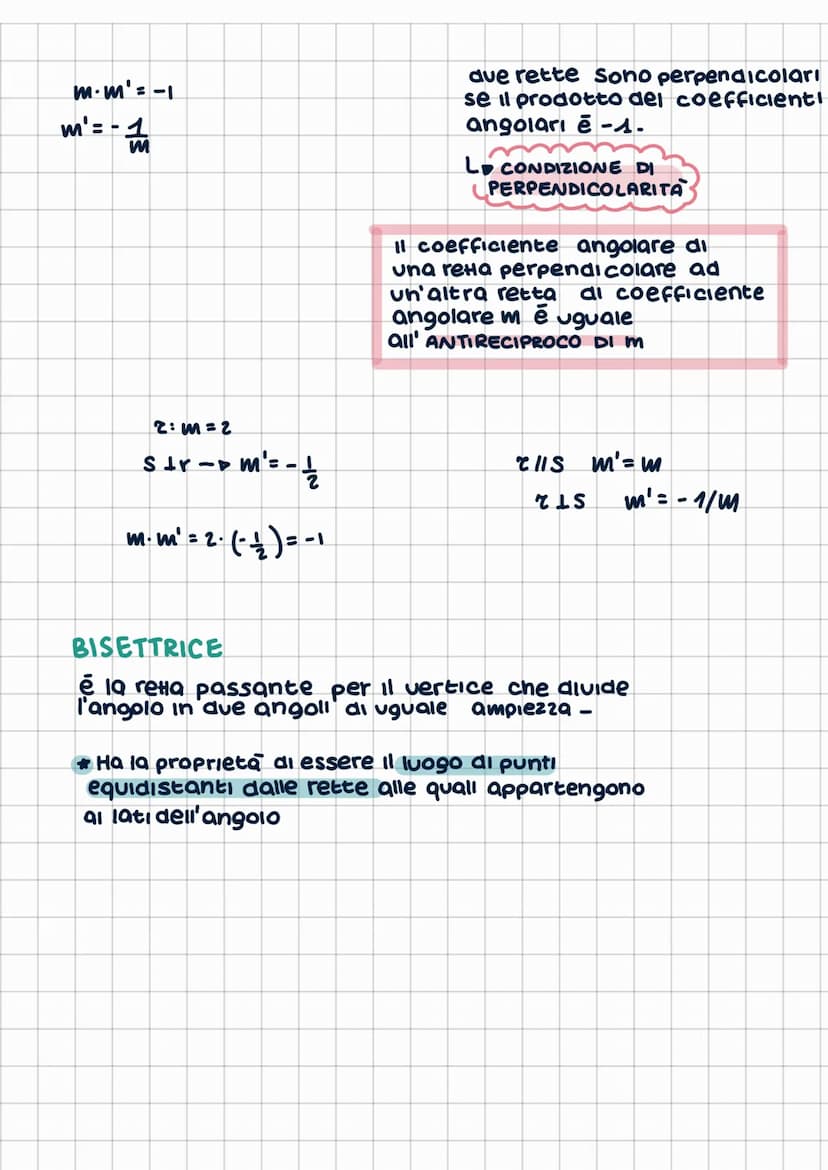 m·m' = -1
m' = - 1/m
due rette sono perpendicolari
se il prodotto dei coefficienti
angolari é -1.
↳ CONDIZIONE DI
PERPENDICOLARITÀ
Il coefficiente angolare di
una retta perpendicolare ad
un'altra retta di coefficiente
angolare m é uguale
all' ANTIRECIPROCO DI m
r: m = 2
s ⊥ r → m' = - 1/2
m·m' = 2·(-1/2) = -1
r // s m' = m
r ⊥ s m' = - 1/m
BISETTRICE
é la retta passante per il vertice che divide
l'angolo in due angoli di uguale ampiezza -
* Ha la proprietà di essere il luogo di punti
equidistanti dalle rette alle quali appartengono
ai lati dell'angolo